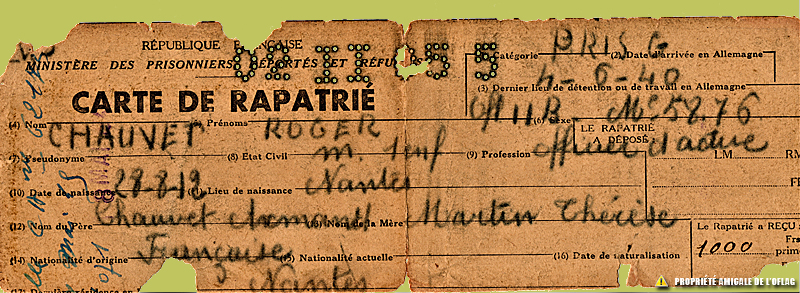 RÉPUBLIQUE FRANÇAISE
MINISTÈRE DES PRISONNIERS, DÉPORTÉS ET RÉFUGIÉS
CARTE DE RAPATRIÉ
Catégorie PRIS G (2) Date d'arrivée en Allemagne
4-6-40
(3) Dernier lieu de détention ou de travail en Allemagne
Of 11B. Mle 5876
(4) Nom CHAUVET Prénoms ROGER (6) Sexe
LE RAPATRIÉ A DÉPOSÉ
(7) Pseudonyme (8) État Civil m. 1 enf (9) Profession Officier d'active
LM RM
(10) Date de naissance 28-8-12 Lieu de naissance Nantes
(12) Nom du Père Chauvet Armand Nom de la Mère Martin Thérèse
Le Rapatrié a REÇU
(14) Nationalité d'origine Française Nationalité actuelle (16) Date de naturalisation
1000 Fra
prime
Dernière résidence en Nantes
PROPRIÉTÉ AMICALE DE L'OFLAG